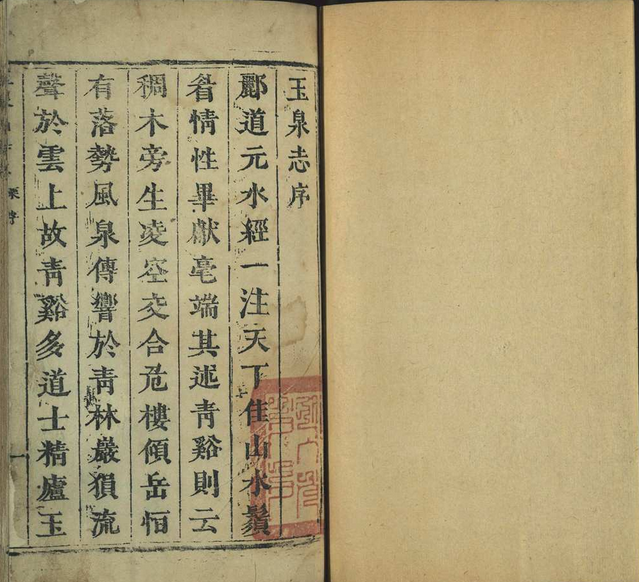 玉泉志序
酈道元水經一注天下佳山水鬚
眉情性畢獻毫端其述青谿則云
稠木旁生凌空交合危樓傾岳恒
有落勢風泉傳響於青林巖猨流
聲於雲上故青谿多道士精廬玉
一